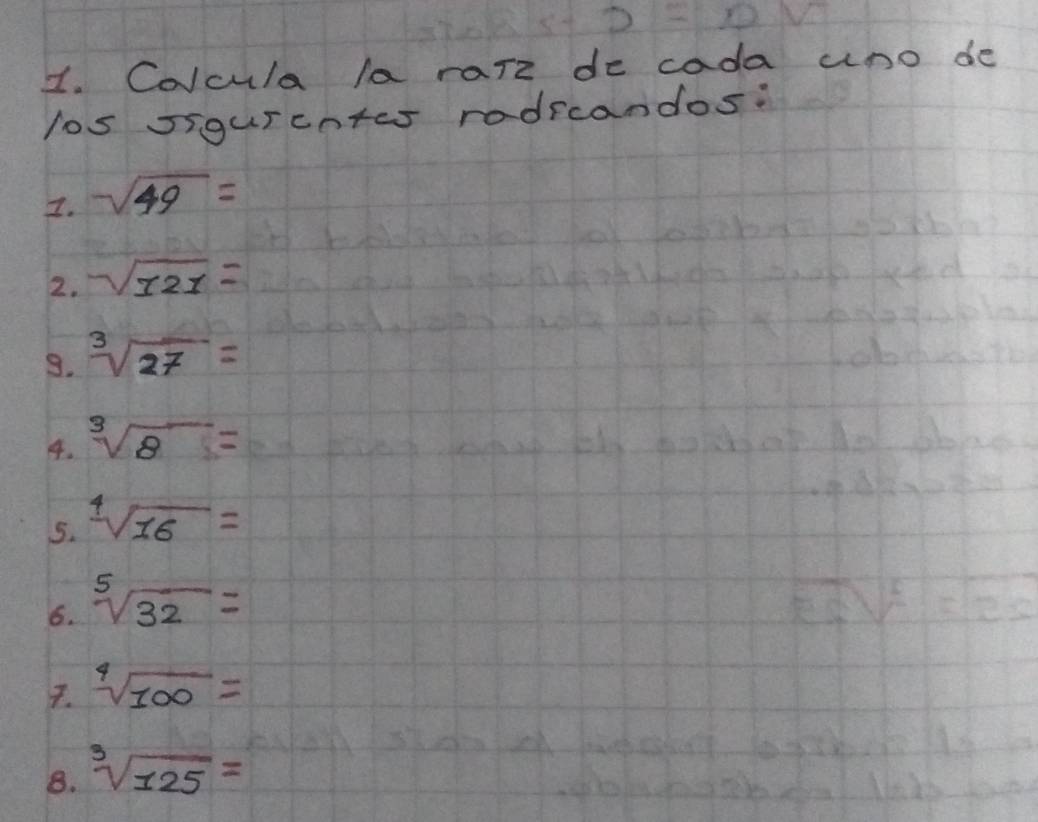 1. Calcula la raíz de cada uno de
los siguientes radicandos:
1. √49 =
2. √121 =
3. ³√27 =
4. ³√8 =
5. ⁴√16 =
6. ⁵√32 =
7. ⁴√100 =
8. ³√125 =